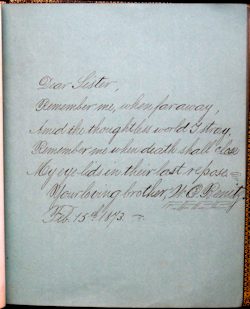 Dear Sister,
Remember me, when far away,
Amid the thoughtless world I stray,
Remember me when death shall close
My eye-lids in their last repose.
Your loving brother, W. C.
Feb. 15th 1873.